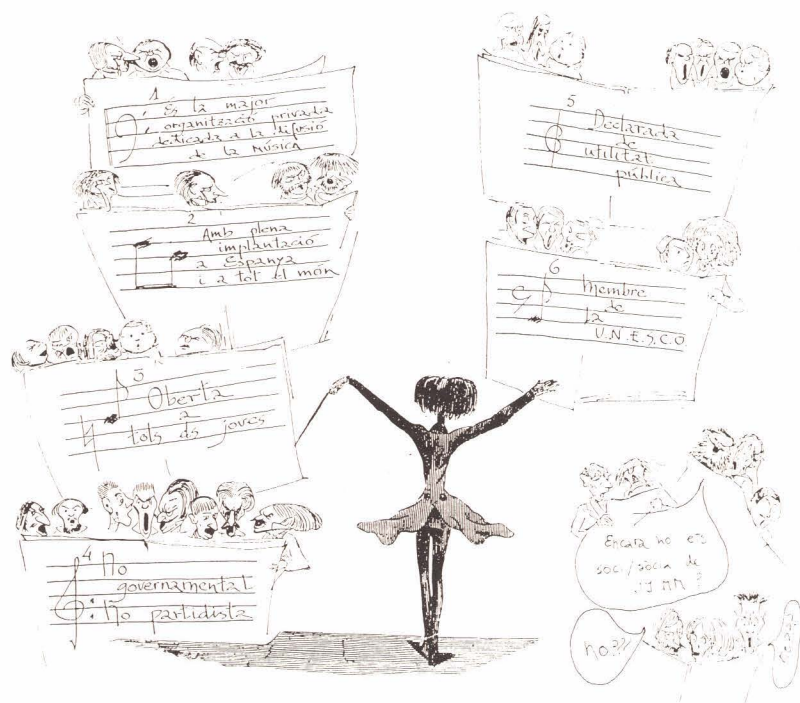 1
És la major
organització privada
dedicada a la difusió
de la música
2
Amb plena
implantació
a Espanya
i a tot el món
3
Oberta
a
tots els joves
4
No
governamental
No partidista
5
Declarada
de
utilitat
pública
6
Membre
de
la
U.N.E.S.C.O
Encara no ets
soci/sòcia de
JJ MM?
no??